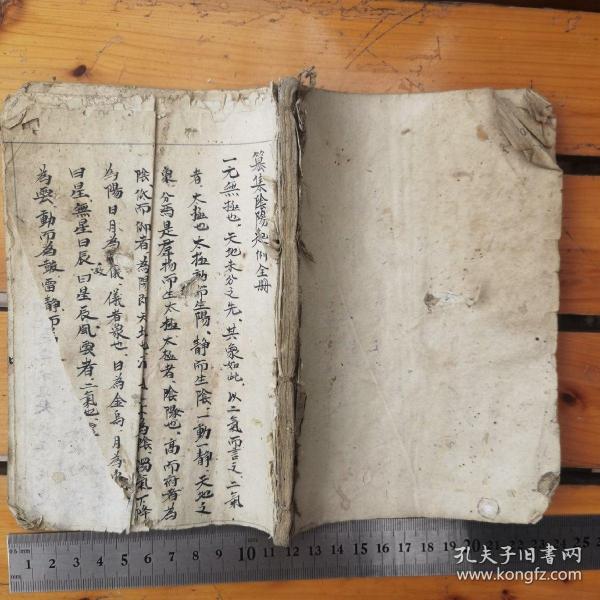 篡集陰陽起例全冊
一元無極也、天地未分之先、其象如此、以二氣而言之、二氣
者、太極也、太極動而生陽、靜而生陰、一動一靜、天地之
象、分焉是群物而生太極太極者、陰陽也、高而府者為
陰低而仰者為陽陽天 為陰、陽氣下降
為陽日月為儀、儀者象也、日為金烏月為
政
曰星無星曰辰、曰星辰風雲者二氣也、
為雲、動而為 雷靜而
0.5mm 1 2 3 4 5 6 7 8 9 10 11 12 13 14 15 16 17 18 19 20 21 22 23 24 25
孔夫子旧书网
www.kongfz.com